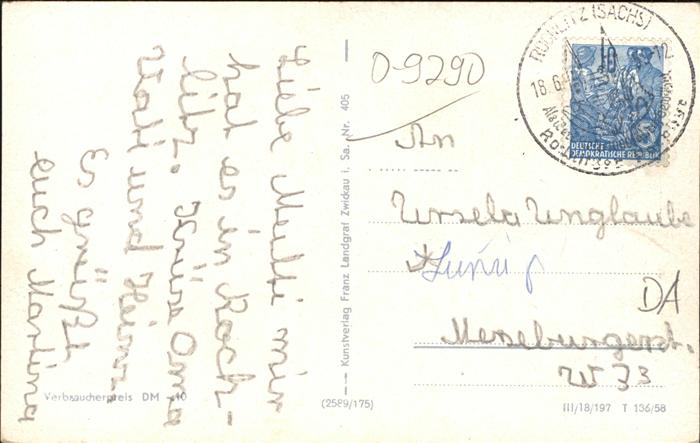 Liebe Mutti mir
hat es in Roch-
litz
Oma
Vati und Heinz
Es grüßt
euch Martina
Verbraucherpreis DM -,10
Kunstverlag Franz Landgraf Zwickau i. Sa. Nr. 405
(2589/175)
0-9290
ROCHLITZ (SACHS)
18.6.
10
DEUTSCHE
DEMOKRATISCHE REPUBLIK
An
Ursela Unglaube
Leipzig
DA
Meseburgerst.
W 33
III/18/197 T 136/58